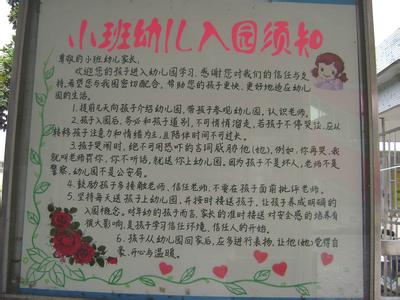 小班幼儿入园须知
尊敬的小班幼儿家长:
欢迎您的孩子进入幼儿园学习,感谢您对我们的信任与支
持,希望您与我园密切配合,帮助您的孩子更快、更好地适应幼儿园
的生活。
1、提前几天向孩子介绍幼儿园,带孩子参观幼儿园,认识老师。
2、孩子入园后,务必和孩子道别,不可悄悄溜走,若孩子不停哭泣,应以
转移孩子注意力和情绪为主,且陪伴时间不可过长。
3、孩子哭闹时,绝不可用恐吓的言词威胁他(她),例如:你再哭,我
就叫老师罚你,你不听话,就送你上幼儿园。因为孩子不是坏人,老师不是
警察,幼儿园不是公安局。
4、鼓励孩子多接触老师,信任老师,不要在孩子面前批评老师。
5、坚持每天送孩子上幼儿园,并按时接送孩子,让孩子养成明确的
入园概念。对年幼的孩子而言,家长的准时接送对安全感的培养有
很大影响,是孩子学习信任环境、信任人的开始。
6、孩子从幼儿园回家后,应多进行表扬,让他(她)觉得自
豪、开心与温暖。